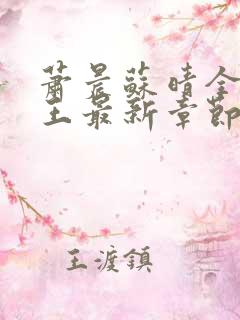 蕭晨蘇晴全
王最新章節
王渡鎮